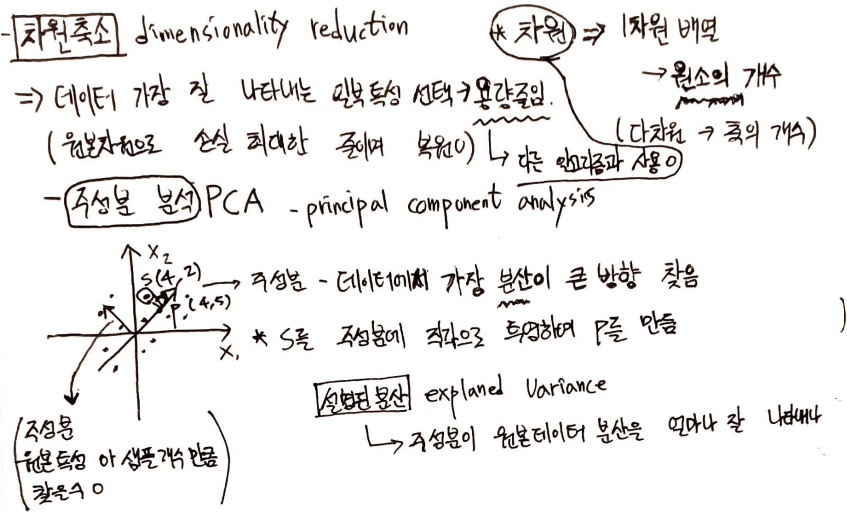 - 차원축소 dimensionality reduction
* 차원 ⇒ 1차원 배열
→ 원소의 개수
(다차원 → 축의 개수)
⇒ 데이터 가장 잘 나타내는 일부 특성 선택 → 용량줄임.
(원본차원으로 손실 최대한 줄이며 복원O)
↳ 다른 알고리즘과 사용O
- 주성분 분석 PCA - principal component analysis
X2
S(4, 2) → 주성분 - 데이터에서 가장 분산이 큰 방향 찾음
P (4,5)
X1
* S를 주성분에 직각으로 투영하여 P를 만듦
설명된 분산 explaned Variance
↳ 주성분이 원본데이터 분산을 얼마나 잘 나타내나
(주성분
원본특성 아 샘플개수 만큼
찾을수 O)